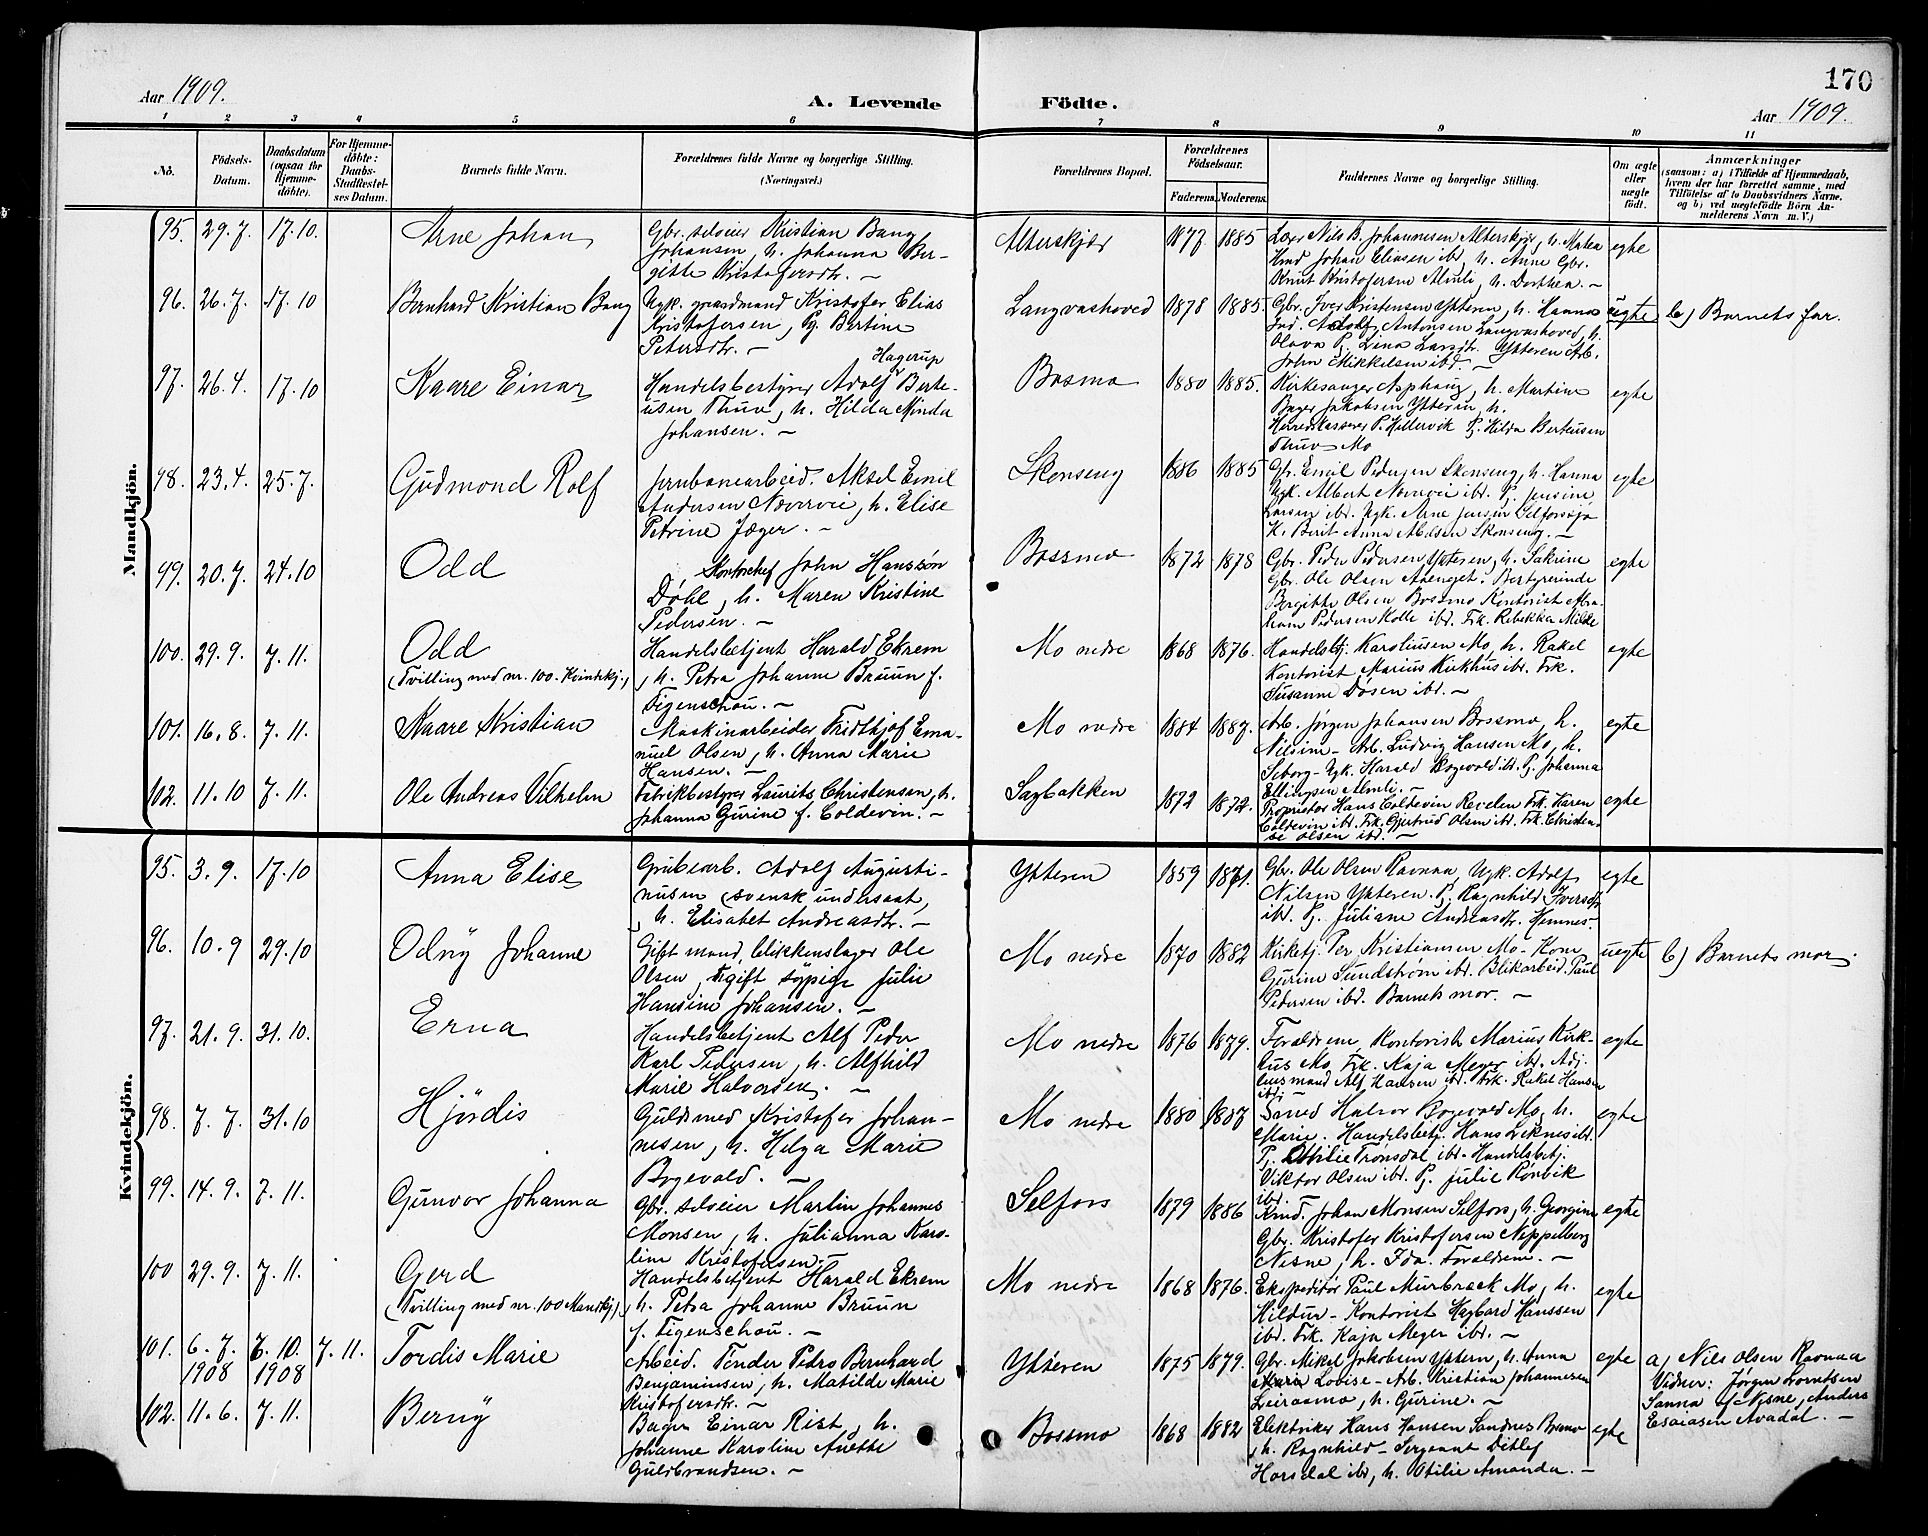 170
Aar 1909.
A. Levende Födte.
Aar 1909.
1 2 3 4 5 6 7 8 9 10 11
No.
Födsels-
Datum.
Daabsdatum
(ogsaa for
Hjemme-
döbte).
For Hjemme-
döbte:
Daabs-
Stadfæstel-
ses Datum.
Barnets fulde Navn.
Forældrenes fulde Navne og borgerlige Stilling.
(Næringsvei.)
Forældrenes Bopæl.
Forældrenes
Födselsaar.
Faderens. Moderens.
Faddernes Navne og borgerlige Stilling.
Om ægte
eller
uægte
födt.
Anmærkninger
(saasom: a) i Tilfælde af Hjemmedaab,
hvem der har forrettet samme, med
Tilföielse af to Daabsvidners Navne,
og b) ved uægtefödte Börn An-
melderens Navn m. V.)
Mandkjön.
95. 29. 7. 17. 10.
Arne Johan
Gbr. selveier Kristian Bang
Johansen, h. Johanna Ber-
gitte Kristofersdtr. —
Alterskjær
1877 1885
Lærer Nils B. Johannesen Alterskjær, h. Matea
Kmd Johan Eliasen ibd, h. Anne Gbr.
Knut Kristofersen Almli, h. Dorthea. —
egte
96. 26. 7. 17. 10
Bernhard Kristian Bang
Ugk. gaardmand Kristofer Elias
Kristofersen, Pg. Bertine
Petersdtr. —
Langvashoved
1878 1885.
Gbr. Iver Kristensen Ytteren, h. Hanna
Ind. Adolf Antonsen Langvashoved, h.
Olava Pg. Lina Larsdtr. Ytteren Arb.
John Mikkelsen ibd. —
uegte
b) Barnets far.
97. 26. 4. 17. 10
Kaare Einar
Hagerup
Handelsbestyrer Adolf Berte-
usen Thuv, h. Hilda Minda
Johansen. —
Bosmo
1880 1885.
Kirkesanger Asphaug, h. Martine
Bager Jakobsen Ytteren, h.
Herredskasserer P. Hellervik Pg. Hilda Berteusen
Thuv Mo
egte
98. 23. 4. 25. 7.
Gudmond Rolf
Jernbanearbeid. Aksel Emil
Andersen Nævervei, h. Elise
Petrine Jæger. —
Skonseng
1886 1885
Gbr. Emil Pedersen Skonseng, h. Hanna
Ugk. Albert Næverei ibd. Pg. Jensine
Larsen ibd. Ugk. Arne Jensen Selforsøja
K. Berit Anna Abelsen Skonseng. —
egte
99. 20. 7. 24. 10
Odd
Kontorchef John Hanssøn
Döhl, h. Maren Kristine
Pedersen. —
Bossmo
1872 1878
Gbr. Peder Pedersen Ytteren, h. Sakrine
Gbr. Ole Olsen Aaenget. Bestyrerinde
Bergitte Olsen Bossmo Kontorist Abra-
ham Pedersen Holte ibd. Frk. Rebekka Milde
egte
100. 29. 9. 7. 11.
Odd
(Tvilling med nr. 100. Kvindekj.)
Handelsbetjent Harald Ekrem
, h. Petra Johanne Bruun f.
Figenschou. —
Mo nedre
1868 1876.
Handelsbtj. Karoliussen Mo, h. Rakel
Kontorist Marius Kirkhus ibd. Frk.
Susanne Dosen ibd. —
egte
101. 16. 8. 7. 11.
Kaare Kristian
Maskinarbeider Fridtkjof Ema-
nuel Olsen, h. Anna Marie
Hansen. —
Mo nedre
1884 1887.
Arb. Jørgen Johansen Bossmo, h.
Nilsine — Arb. Ludvig Hansen Mo, h.
Seborg — Ugk. Harald Bogevold ibd. Pg. Johanna
Ellingsen Almli. —
egte
102. 11. 10 7. 11.
Ole Andreas Vilhelm
Fabrikbestyrer Laurits Christensen, h.
Johanna Gurine f. Coldevin. —
Sagbakken
1872 1872.
Proprietær Hans Coldevin Revelen Frk. Karen
Coldevin ibd. Frk. Gjertrud Olsen ibd. Frk. Christen-
se Olsen ibd. —
egte
Kvindekjön.
95. 3. 9. 17. 10
Anna Elise
Grubearb. Adolf Augusti-
nusen (svensk undersaat,
, h. Elisabet Andreasdtr. —
Ytteren
1859 1871.
Gbr. Ole Olsen Ravnaa, Ugk. Adolf
Nilsen Ytteren. Pg. Ragnhild Iversdtr
ibd. Pg. Juliane Andreasdtr. Hemnes —
egte
96. 10. 9 29. 10
Odny Johanne
Gift mand, blikkenslager Ole
Olsen, ugift sypige Julie
Hansine Johansen. —
Mo nedre
1870 1882
Kirketj. Per Kristiansen Mo — Kone
Gurine Sundstrøm ibd. Blikarbeid. Paul
Pedersen ibd. Barnets mor. —
uegte
b) Barnets mor.
97. 21. 9. 31. 10.
Erna
Handelsbetjent Alf Peder
Karl Pedersen, h. Alfhild
Marie Halvorsen. —
Mo nedre
1876 1879.
Forældrene, Kontorist Marius Kirk-
hus Mo, Frk. Kaja Meyer ibd. Adj.
lensmand Alf Hansen ibd. Frk. Rakel Hansen
ibd. —
egte
98. 7. 7. 31. 10
Hjördis
Guldsmed Kristofer Johan-
nesen, h. Helga Marie
Bogevold. —
Mo nedre
1880 1887
Smed Halvor Bogevold Mo, h.
Marie. Handelsbetj. Hans Leknes ibd.
Pg. Otilie Trönsdal ibd. Handelsbetj.
Viktor Olsen ibd. Pg. Julie Rönvik
ibd. —
egte
99. 14. 9. 7. 11.
Gunvor Johanna
Gbr. selveier Martin Johannes
Monsen, h. Julianna Karo-
line Kristofersen. —
Selfors
1879 1886
Kmd. Johan Monsen Selfors, h. Georgine
Gbr. Kristofer Kristofersen Neppelberg
Nesne, h. Ida. Forældrene. —
egte
100 29. 9. 7. 11.
Gerd
(Tvilling med nr. 100 Mandkj.)
Handelsbetjent Harald Ekrem
, h. Petra Johanne Bruun
f. Figenschou. —
Mo nedre
1868 1876.
Ekspeditör Paul Murbræk Mo, h.
Hildur — Kontorist Hagbard Hanssen
ibd. Frk. Kaja Meyer ibd. —
egte
101. 6. 7. 7. 10. 7. 11.
1908 1908
Tordis Marie
Arbeid. Tønder Pedro Bernhard
Benjaminsen, h. Matilde Marie
Kristofersdtr. —
Ytteren
1875 1879.
Gbr. Mikal Jakobsen Yttern, h. Anna
Lovise — Arb. Kristian Johannesen
Leiraamo, h. Gurine. —
egte
a) Nils Olsen Ravnaa
Vidner: Jørgen Lorntsen
Sanna af Nesne, Anders
Esaiasen Avadal. —
102. 11. 6. 7. 11.
Berny
Bager Einar Rist, h.
Johanne Karoline Anette
Guldbrandsen. —
Bossmo
1868 1882
Elektriker Hans Hansen Sandnes Bosmo
, h. Ragnhild — Sergeant Ditlef
Horsdal ibd, h. Otilie Amanda. —
egte